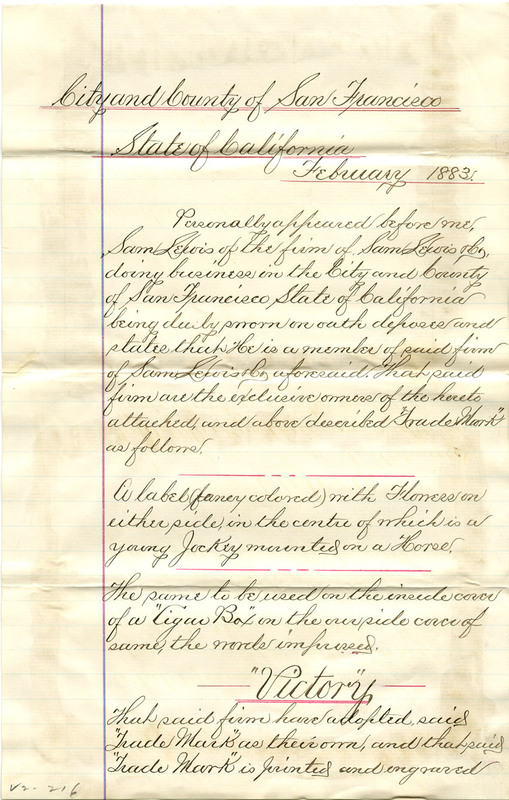 City and County of San Francisco
State of California
February 1883.
Personally appeared before me,
Sam Lewis of the firm of Sam Lewis & Co,
doing business in the City and County
of San Francisco State of California
being duly sworn on oath deposes and
states that He is a member of said firm
of Sam Lewis & Co, aforesaid, That said
firm are the exclusive owners of the hereto
attached, and above described "Trade Mark"
as follows.
A label (fancy colored) with Flowers on
either side, in the centre of which is a
young Jockey mounted on a Horse.
The same to be used on the inside cover
of a "Cigar Box" on the outside cover of
same, the words impressed.
"Victory"
That said firm have adopted, said
"Trade Mark" as their own, and that said
"Trade Mark" is printed and engraved
V2-216